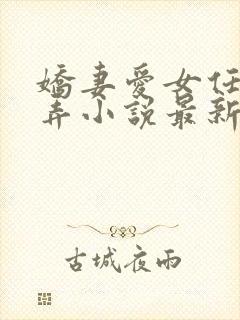 嬌妻愛女任
弄小說最新
古城夜雨